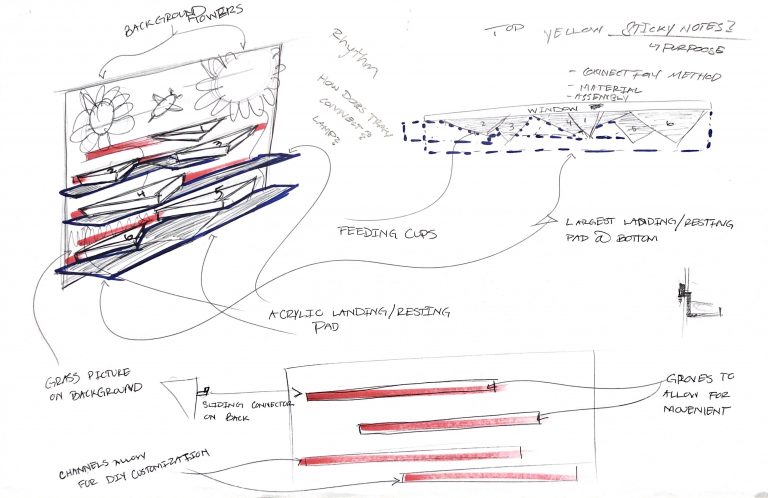 BACKGROUND FLOWERS
Rhythm
HOW DOES TRAY
CONNECT?
LAMP?
TOP YELLOW STICKY NOTES?
↳ PURPOSE
- CONNECTION METHOD
- MATERIAL
- ASSEMBLY
WINDOW
2
3
4
1
5
6
1
2
3
4
5
6
FEEDING CUPS
LARGEST LANDING/RESTING
PAD @ BOTTOM
ACRYLIC LANDING/RESTING
PAD
GRASS PICTURE
ON BACKGROUND
SLIDING CONNECTOR
ON BACK
GROVES TO
ALLOW FOR
MOVENIENT
CHANNELS ALLOW
FOR DIY CUSTOMIZATION